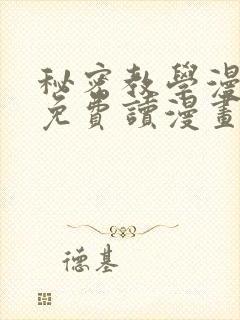 秘密教學漫
免費讀漫畫
德基